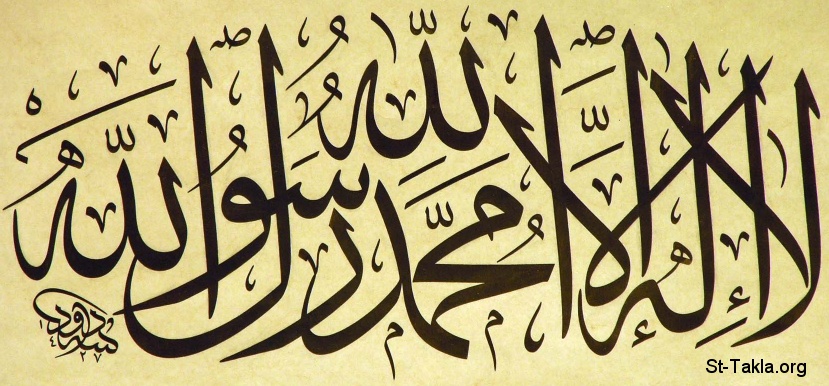 لَا إِلٰهَ إِلَّا اللّٰه مُحَمَّد رَسُولُ اللّٰه
داود ١٤٢٧
St-Takla.org